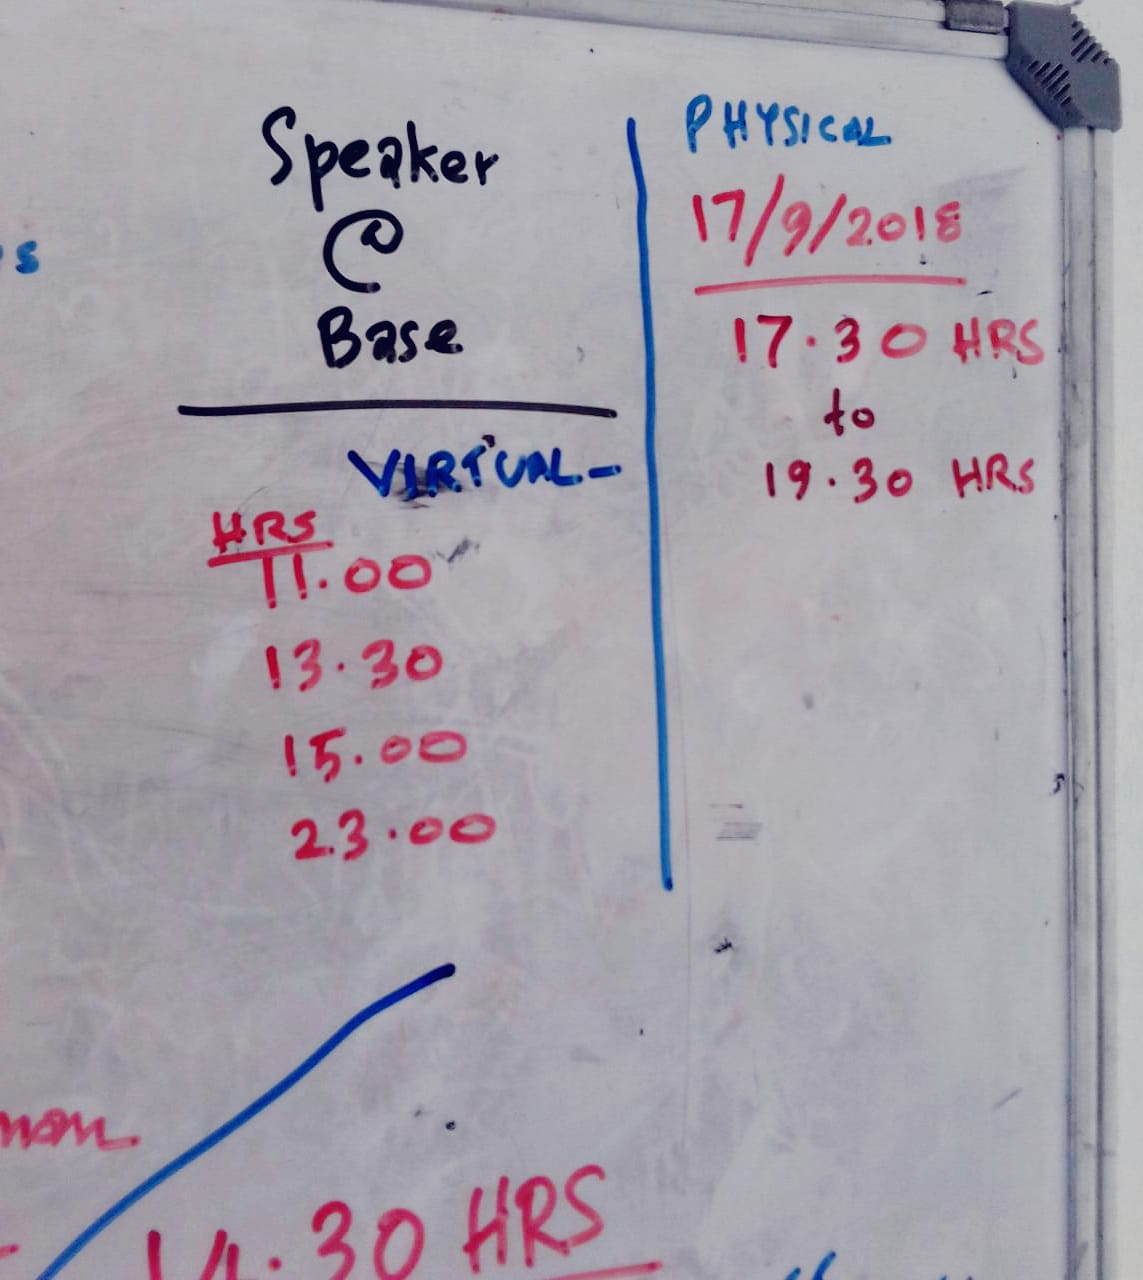 Speaker
@
Base
VIRTUAL-
HRS
11.00
13.30
15.00
23.00
PHYSICAL
17/9/2018
17.30 HRS
to
19.30 HRS
14.30 HRS